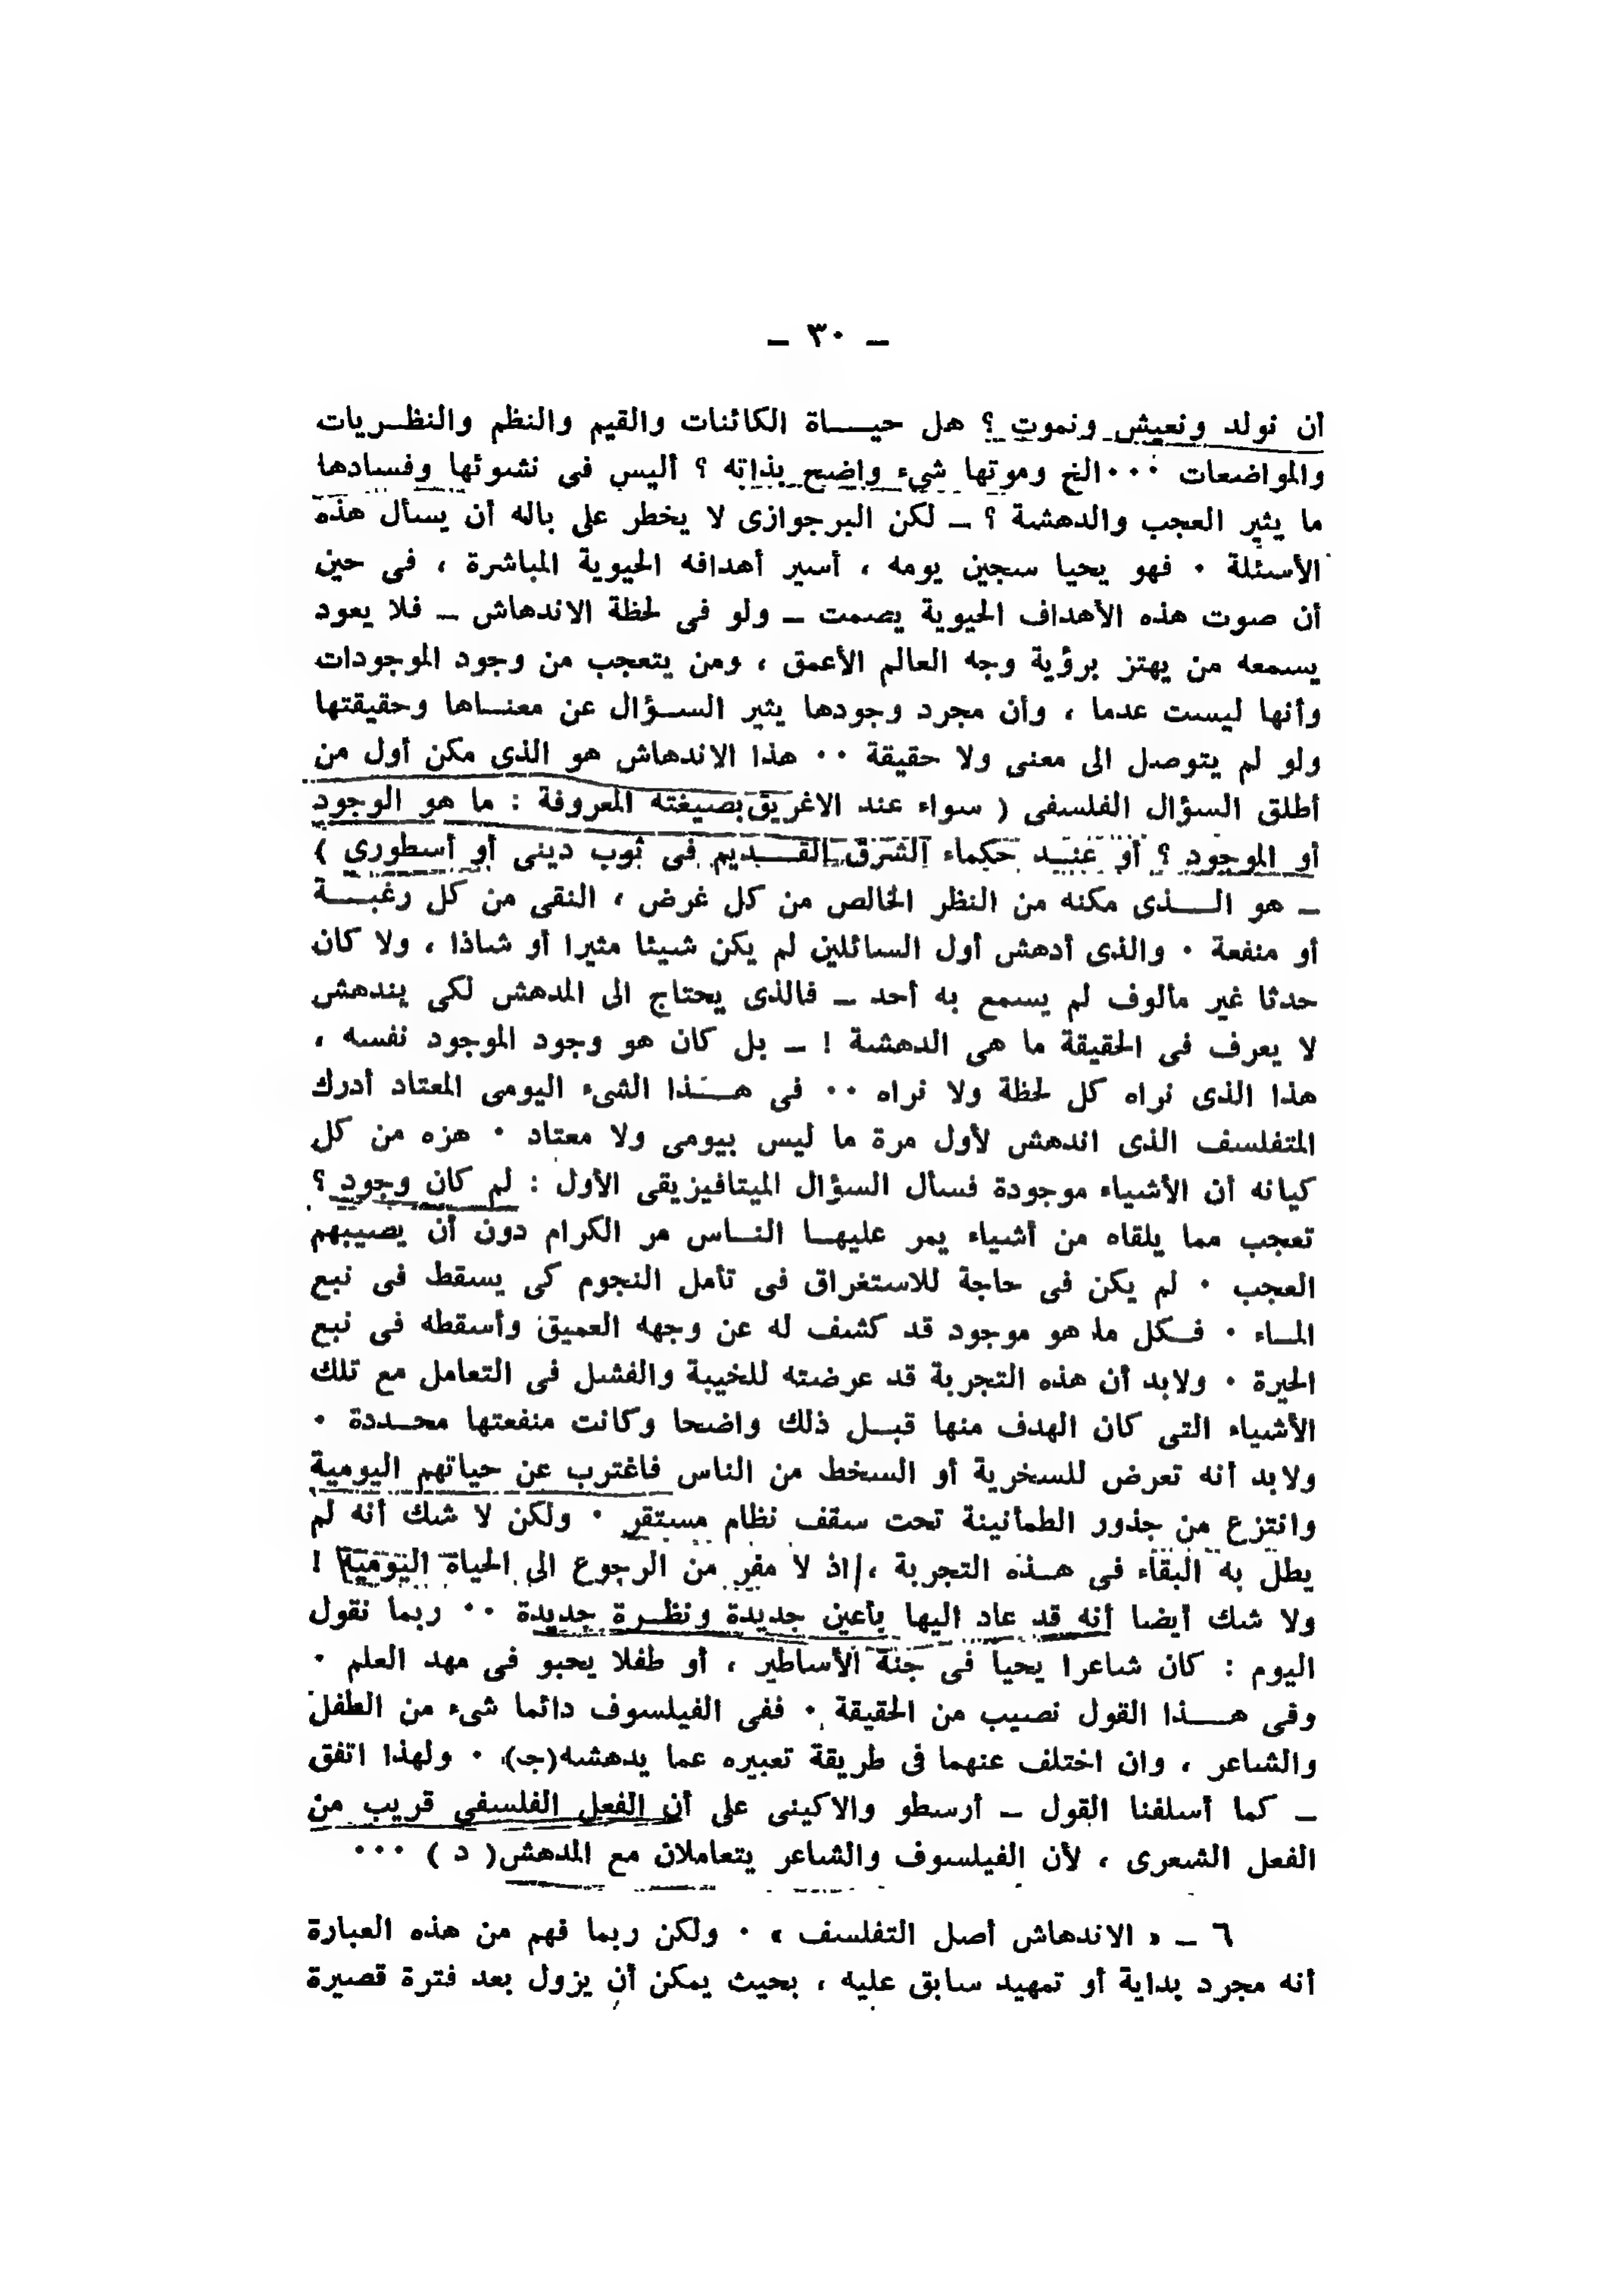 – ٣٠ –
أن نولد ونعيش ونموت ؟ هل حياة الكائنات والقيم والنظم والنظريات
والمواضعات ٠٠٠الخ وموتها شيء واضح بذاته ؟ أليس فى نشوئها وفسادها
ما يثير العجب والدهشة ؟ – لكن البرجوازى لا يخطر على باله أن يسأل هذه
الأسئلة ٠ فهو يحيا سجين يومه ، أسير أهدافه الحيوية المباشرة ، فى حين
أن صوت هذه الأهداف الحيوية يصمت – ولو فى لحظة الاندهاش – فلا يعود
يسمعه من يهتز برؤية وجه العالم الأعمق ، ومن يتعجب من وجود الموجودات
وأنها ليست عدما ، وأن مجرد وجودها يثير السؤال عن معناها وحقيقتها
ولو لم يتوصل الى معنى ولا حقيقة ٠٠ هذا الاندهاش هو الذى مكن أول من
أطلق السؤال الفلسفى ( سواء عند الاغريق بصيغته المعروفة : ما هو الوجود
أو الموجود ؟ أو عند حكماء الشرق القديم فى ثوب دينى أو أسطورى )
– هو الذى مكنه من النظر الخالص من كل غرض ، النقى من كل رغبة
أو منفعة ٠ والذى أدهش أول السائلين لم يكن شيئا مثيرا أو شاذا ، ولا كان
حدثا غير مألوف لم يسمع به أحد – فالذى يحتاج الى المدهش لكى يندهش
لا يعرف فى الحقيقة ما هى الدهشة ! – بل كان هو وجود الموجود نفسه ،
هذا الذى نراه كل لحظة ولا نراه ٠٠ فى هذا الشىء اليومى المعتاد أدرك
المتفلسف الذى اندهش لأول مرة ما ليس بيومى ولا معتاد ٠ هزه من كل
كيانه أن الأشياء موجودة فسأل السؤال الميتافيزيقى الأول : لم كان وجود ؟
تعجب مما يلقاه من أشياء يمر عليها الناس مر الكرام دون أن يصيبهم
العجب ٠ لم يكن فى حاجة للاستغراق فى تأمل النجوم كى يسقط فى نبع
الماء ٠ فكل ما هو موجود قد كشف له عن وجهه العميق وأسقطه فى نبع
الحيرة ٠ ولابد أن هذه التجربة قد عرضته للخيبة والفشل فى التعامل مع تلك
الأشياء التى كان الهدف منها قبل ذلك واضحا وكانت منفعتها محددة ٠
ولابد أنه تعرض للسخرية أو السخط من الناس فاغترب عن حياتهم اليومية
وانتزع من جذور الطمأنينة تحت سقف نظام مستقر ٠ ولكن لا شك أنه لم
يطل به البقاء فى هذه التجربة ، اذ لا مفر من الرجوع الى الحياة اليومية !
ولا شك أيضا أنه قد عاد اليها بأعين جديدة ونظرة جديدة ٠٠ ربما نقول
اليوم : كان شاعرا يحيا فى جنة الأساطير ، أو طفلا يحبو فى مهد العلم ٠
وفى هذا القول نصيب من الحقيقة ٠ ففى الفيلسوف دائما شىء من الطفل
والشاعر ، وان اختلف عنهما فى طريقة تعبيره عما يدهشه(جـ) ٠ ولهذا اتفق
– كما أسلفنا القول – أرسطو والاكينى على أن الفعل الفلسفى قريب من
الفعل الشعرى ، لأن الفيلسوف والشاعر يتعاملان مع المدهش( د ) ٠٠٠
٦ – « الاندهاش أصل التفلسف » ٠ ولكن ربما فهم من هذه العبارة
أنه مجرد بداية أو تمهيد سابق عليه ، بحيث يمكن أن يزول بعد فترة قصيرة